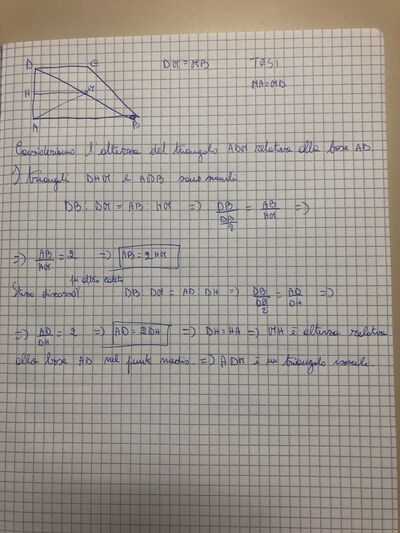 D C DM = MB TESI
H M MA = MD
A B
Consideriamo l'altezza del triangolo ADM relativa alla base AD
I triangoli DHM e ADB sono simili
DB : DM = AB : HM => DB / (DB/2) = AB / HM =>
=> AB / HM = 2 => AB = 2HM
per altro cateto
Stesso discorso DB : DM = AD : DH => DB / (DB/2) = AD / DH =>
=> AD / DH = 2 => AD = 2DH => DH = HA => MH è altezza relativa
alla base AD nel punto medio. => ADM è un triangolo isoscele.